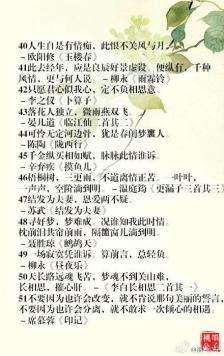 40人生自是有情痴，此恨不关风与月。
－欧阳修《玉楼春》
41此去经年，应是良辰好景虚设。便纵有，千种
风情，更与何人说。－柳永《雨霖铃》
42只愿君心似我心，定不负相思意。
－李之仪《卜算子》
43落花人独立，微雨燕双飞。
－晏几道《临江仙二首其二》
44可怜无定河边骨，犹是春闺梦里人。
－陈陶《陇西行》
45千金纵买相如赋，脉脉此情谁诉。
－辛弃疾《摸鱼儿》
46梧桐树，三更雨，不道离情正苦。一叶叶，
一声声，空阶滴到明。－温庭筠《更漏子三首其三》
47结发为夫妻，恩爱两不疑。
－苏武《结发为夫妻》
48寻好梦，梦难成。况谁知我此时情。
枕前泪共帘前雨，隔窗儿滴到明。
－聂胜琼《鹧鸪天》
49一场寂寞凭谁诉。算前言，总轻负。
－柳永《昼夜乐》
50天长路远魂飞苦，梦魂不到关山难，
长相思，摧心肝。－《李白长相思二首其一》
51不要因为也许会改变，就不肯说那句美丽的誓言，
不要因为也许会分离，就不敢求一次倾心的相遇。
－席慕蓉《印记》